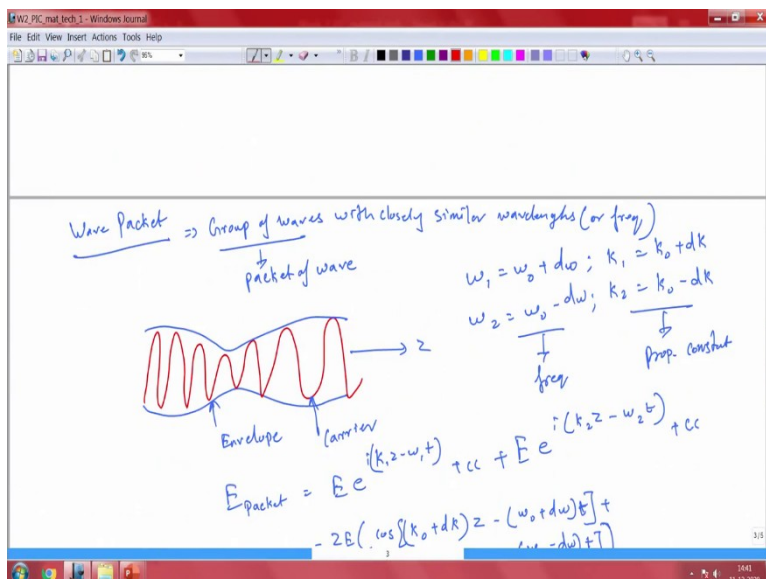 W2_PIC_mat_tech_1 - Windows Journal
File Edit View Insert Actions Tools Help
95%
B I
Wave Packet => Group of waves with closely similar wavelenghs (or freq)
packet of wave
ω₁ = ω₀ + dω ; k₁ = k₀ + dk
ω₂ = ω₀ - dω ; k₂ = k₀ - dk
freq
prop. constut
z
Envelope
Carrier
E packet = E e^i(k₁z-ω₁t) + cc + E e^i(k₂z-ω₂t) + cc
- 2E( cos[(k₀+dk) z - (ω₀+dω)t] +
(ω₀-dω)t])
3
3/5
14:41